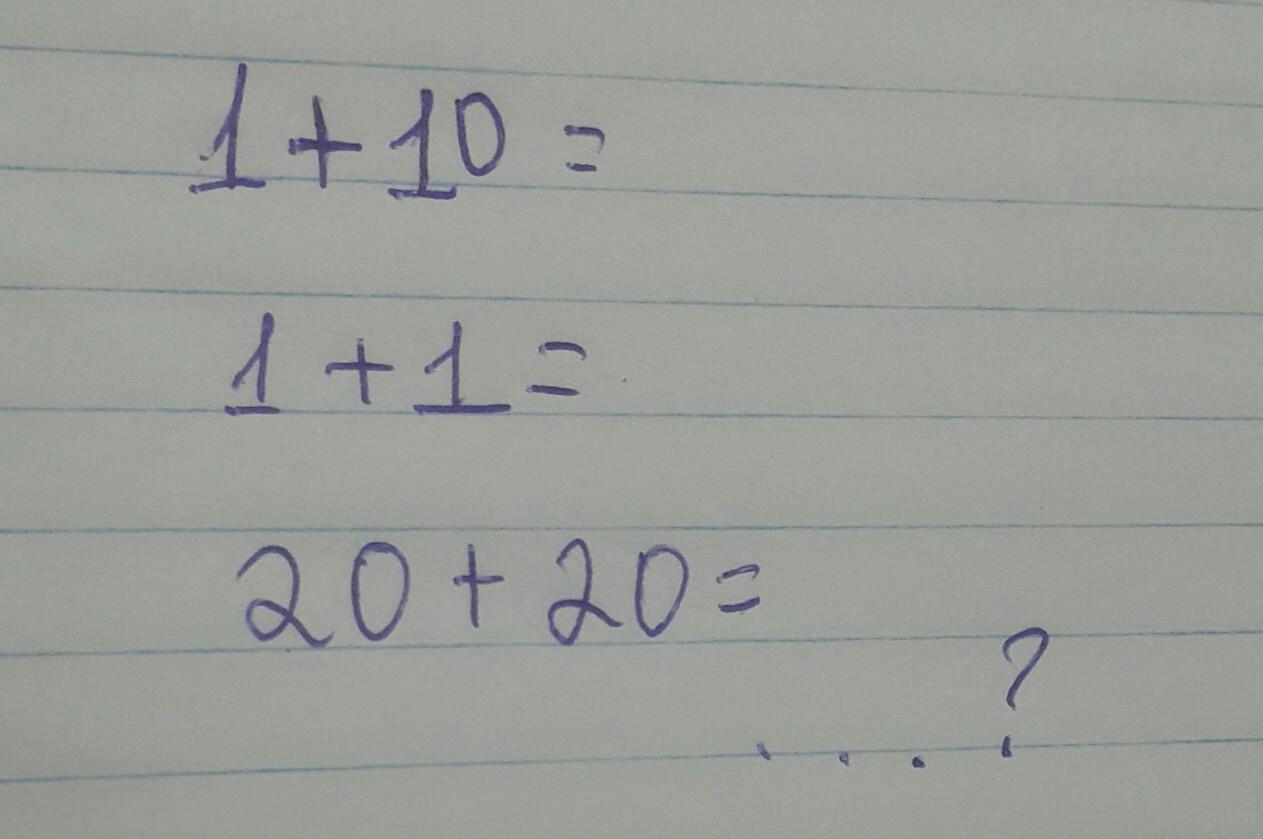 1 + 10 =
1 + 1 =
20 + 20 =
...?